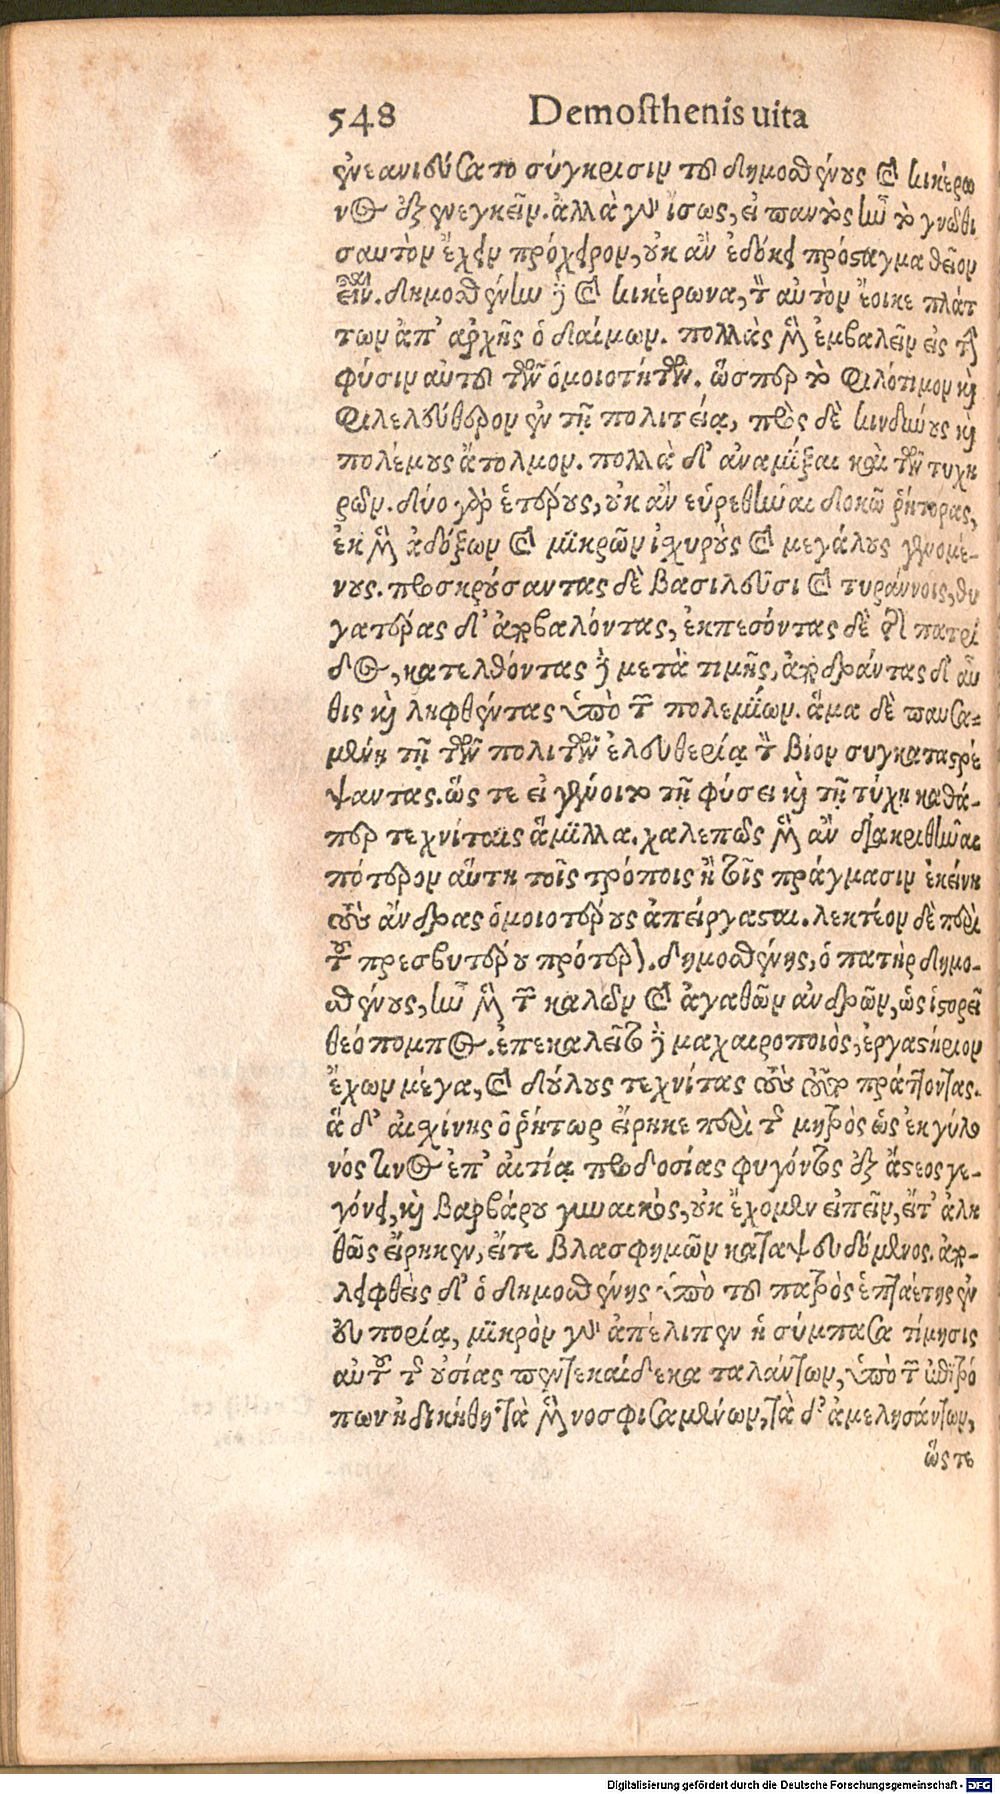 548 Demosthenis uita
ἐνεανιεύσατο σύγκρισιν τοῦ δημοσθένους καὶ κικέρω
νος ἐξενεγκεῖν. ἀλλὰ γὰρ ἴσως, εἰ παντὸς ἦν τὸ γνῶθι
σαυτὸν ἔχειν πρόχειρον, οὐκ ἂν ἐδόκει πρόσταγμα θεῖον
εἶναι. δημοσθένην γὰρ καὶ κικέρωνα, τὸν αὐτὸν ἔοικε πλάτ
των ἀπ' ἀρχῆς ὁ δαίμων. πολλὰς μὲν ἐμβαλεῖν εἰς τὴν
φύσιν αὐτοῦ τῶν ὁμοιοτήτων. ὥσπερ τὸ φιλότιμον καὶ
φιλελεύθερον ἐν τῇ πολιτείᾳ, πρὸς δὲ κινδύνους καὶ
πολέμους ἄτολμον. πολλὰ δ' ἀναμῖξαι καὶ τῶν τυχη
ρῶν. δύο γὰρ ἑτέρους, οὐκ ἂν εὑρεθῆναι δοκῶ ῥήτορας,
ἐκ μὲν ἀδόξων καὶ μικρῶν ἰσχυροὺς καὶ μεγάλους γενομέ-
νους. προσκρούσαντας δὲ βασιλεῦσι καὶ τυράννοις, θυ
γατέρας δ' ἀποβαλόντας, ἐκπεσόντας δὲ τῶν πατρί
δος, κατελθόντας δὲ μετὰ τιμῆς, ἀποδράντας δ' αὖ
θις καὶ ληφθέντας ὑπὸ τῶν πολεμίων. ἅμα δὲ παυσα-
μένῃ τῇ τῶν πολιτῶν ἐλευθερίᾳ τὸν βίον συγκαταστρέ
ψαντας. ὥς τε εἰ γένοιτο τῇ φύσει καὶ τῇ τύχῃ καθά-
περ τεχνίταις ἅμιλλα. χαλεπῶς μὲν ἂν διακριθῆναι
πότερον αὕτη τοῖς τρόποις ἢ τοῖς πράγμασιν ἐκείνη
τοὺς ἄνδρας ὁμοιοτέρους ἀπείργασται. λεκτέον δὲ περὶ
τοῦ πρεσβυτέρου πρότερον. δημοσθένης, ὁ πατὴρ δημο-
σθένους, ἦν μὲν τῶν καλῶν καὶ ἀγαθῶν ἀνδρῶν, ὡς ἱστορεῖ
θεόπομπος. ἐπεκαλεῖτο δὲ μαχαιροποιὸς, ἐργαστήριον
ἔχων μέγα, καὶ δούλους τεχνίτας τοὺς τοῦτο πράττοντας.
ἃ δ' αἰσχίνης ὁ ῥήτωρ εἴρηκε περὶ τῆς μητρὸς ὡς ἐκ γύλω
νός τινος ἐπ' αἰτίᾳ προδοσίας φυγόντος ἐξ ἄστεος γε-
γόνει, καὶ βαρβάρου γυναικὸς, οὐκ ἔχομεν εἰπεῖν, εἴτ' ἀλη
θῶς εἴρηκεν, εἴτε βλασφημῶν καταψευδόμενος. ἀπο-
λειφθεὶς δ' ὁ δημοσθένης ὑπὸ τοῦ πατρὸς ἑπταέτης ἐν
εὐπορίᾳ, μικρὸν γὰρ ἀπέλιπεν ἡ σύμπασα τίμησις
αὐτοῦ τῆς οὐσίας πεντεκαίδεκα ταλάντων, ὑπὸ τῶν ἐπιτρό
πων ἠδικήθη. τὰ μὲν νοσφισαμένων, τὰ δ' ἀμελησάντων,
ὥς τε
Digitalisierung gefördert durch die Deutsche Forschungsgemeinschaft - DFG